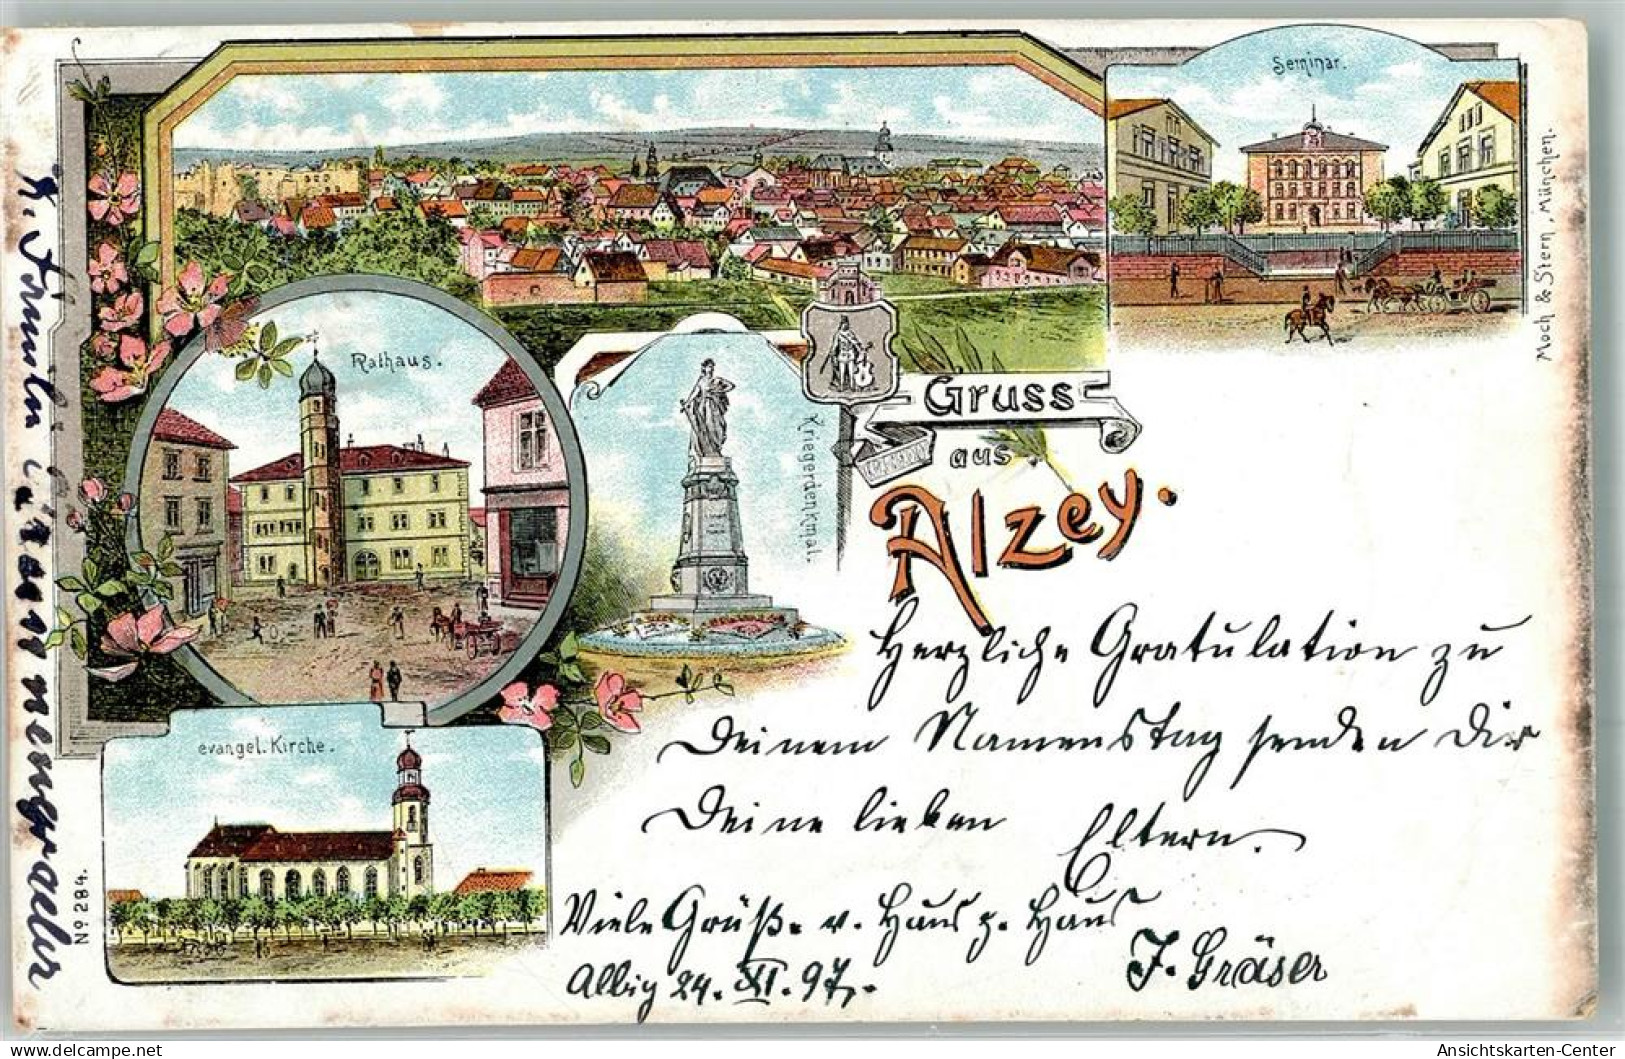 Seminar.
Rathaus.
Kriegerdenkmal.
Gruss
aus
Alzey.
evangel. Kirche.
Moch & Stern, München.
No 284.
Herzliche Gratulation zu
Deinem Namenstag senden Dir
Deine lieben Eltern.
Viele Grüße v. Haus z. Haus
Albig 24. XI. 97.
J. Gräser
www.ansichtskarten-center.de
Ansichtskarten-Center